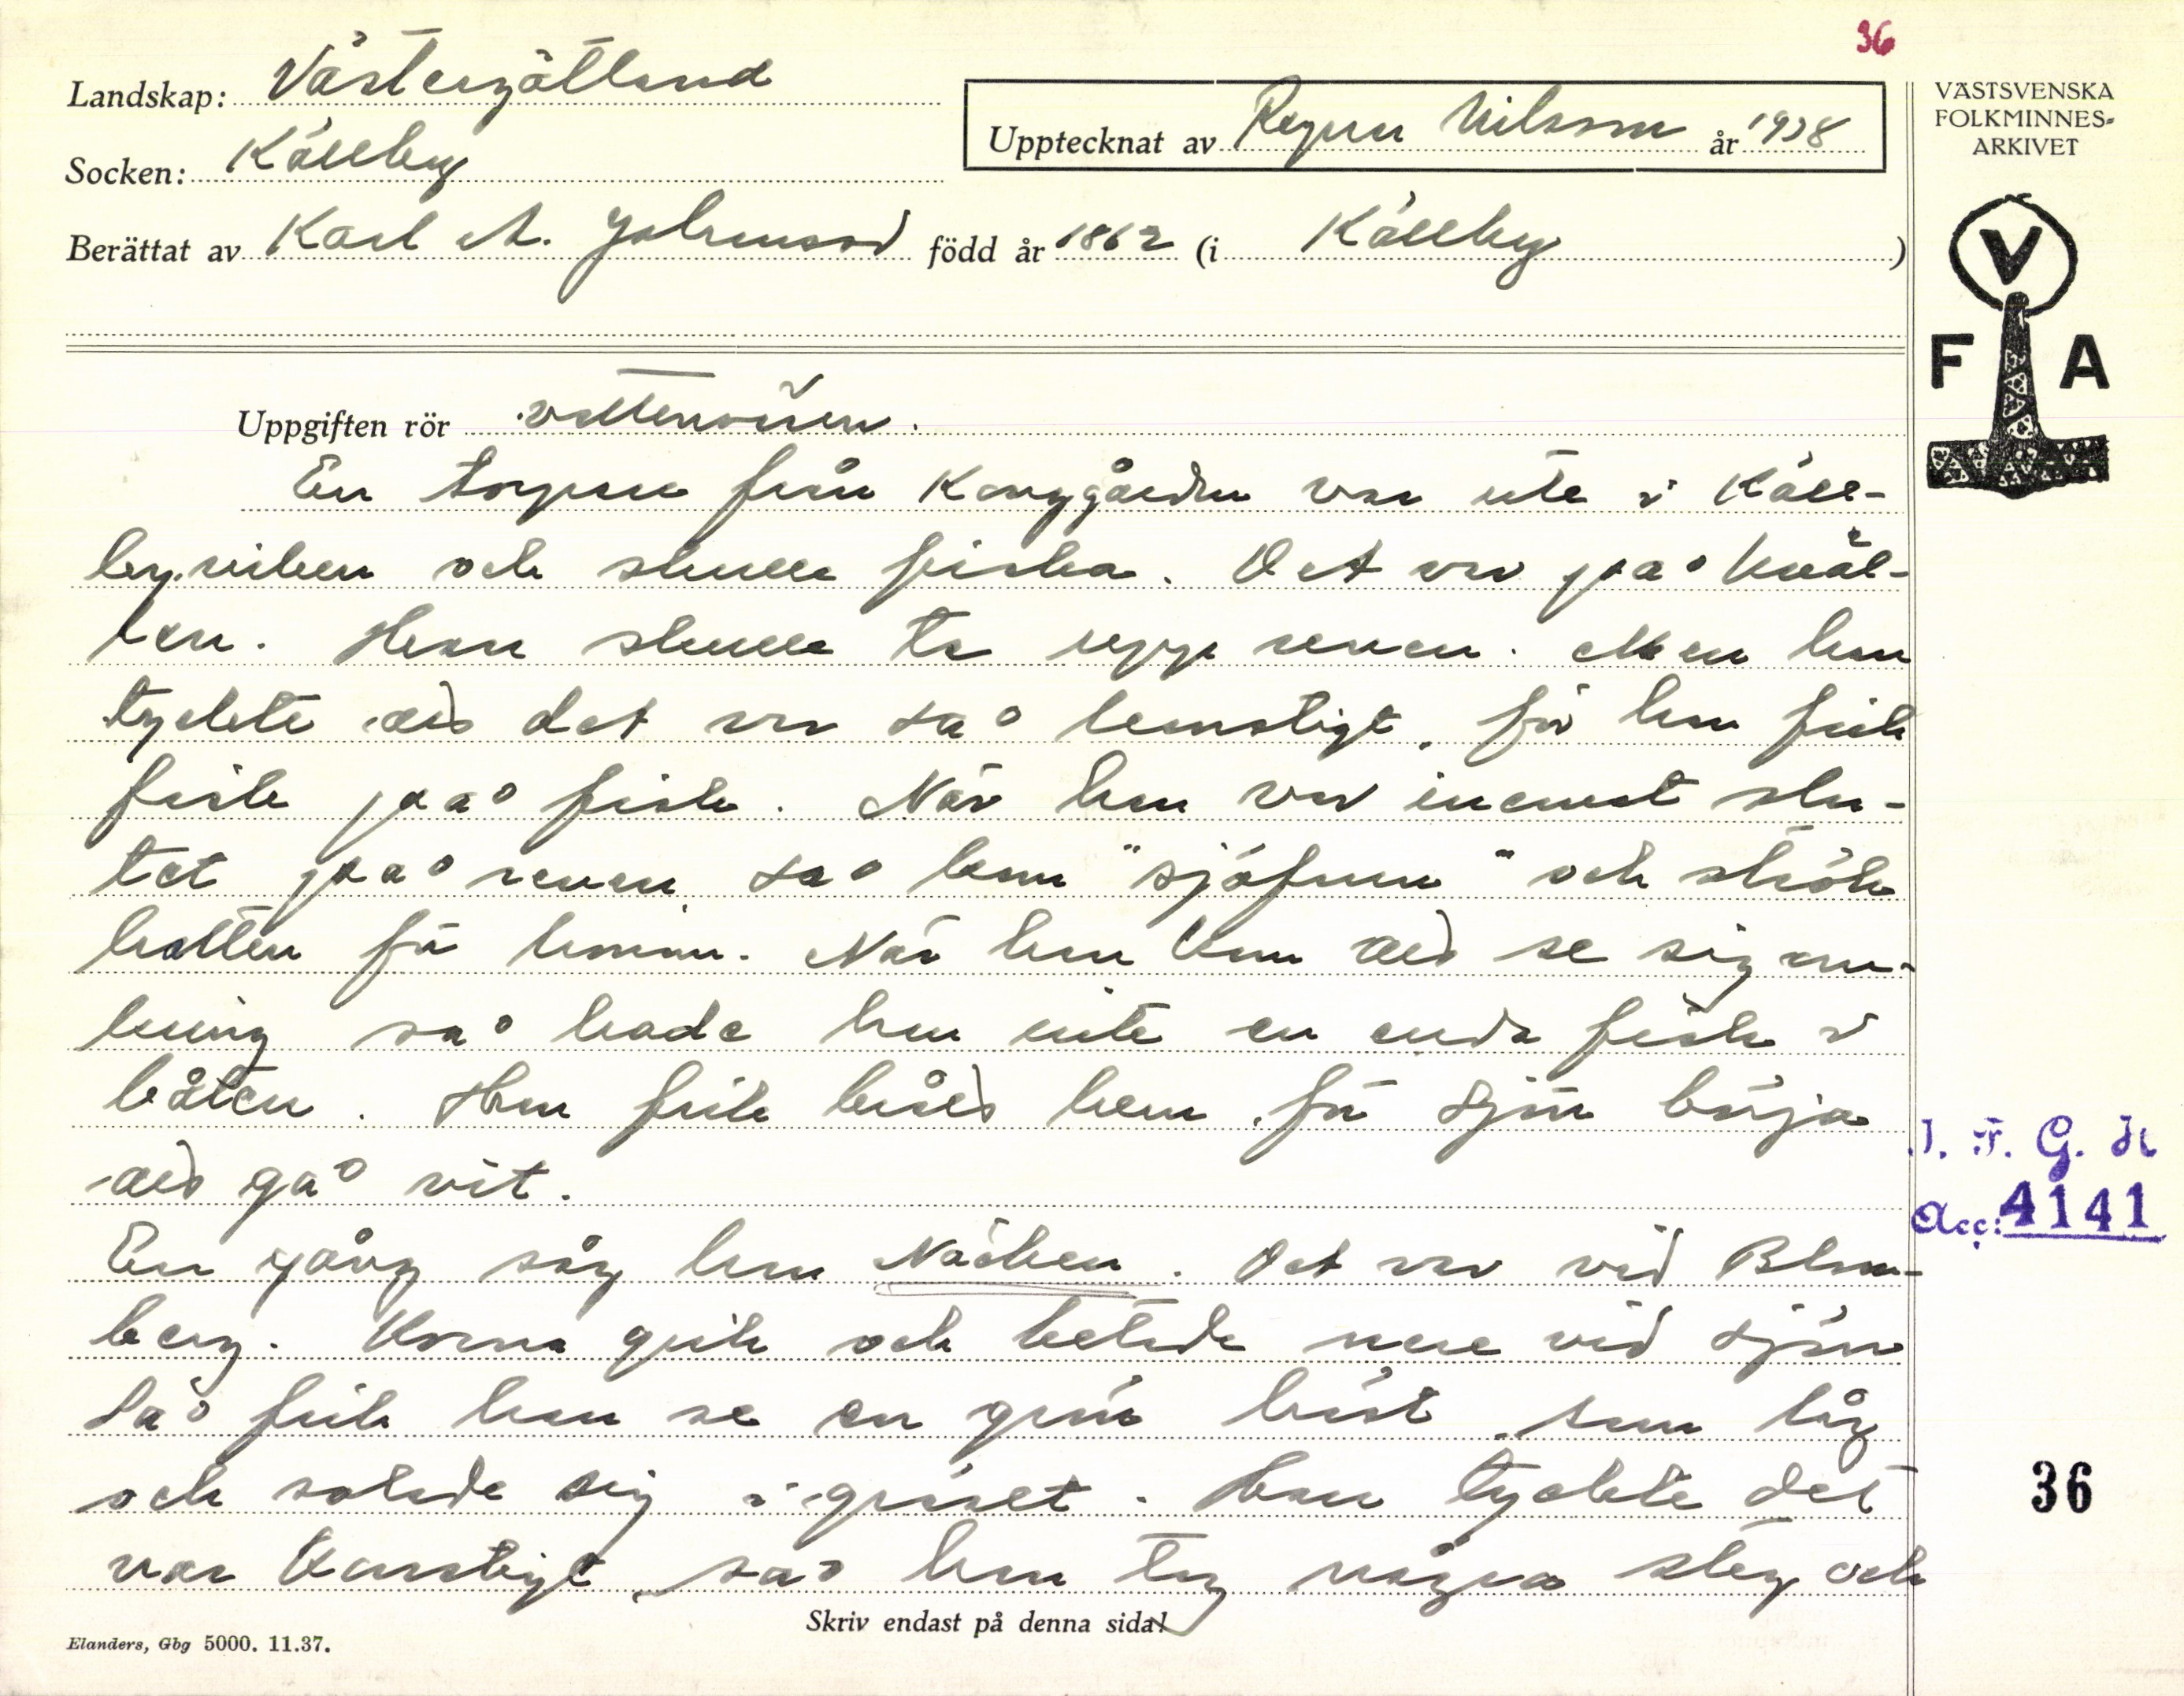 36
Landskap: Västergötland
Socken: Källby
Upptecknat av Ragnar Nilsson år 1938
Berättat av Karl A. Johansson född år 1862 (i Källby)
VÄSTSVENSKA
FOLKMINNES-
ARKIVET
V
F A
Uppgiften rör vattenväsen.
En torpare från Kungsgården var ute i Käll-
byviken och skulle fiska. Det var på kväl-
len. Han skulle ta upp reven. Men han
tyckte att det var så konstigt, för han fick
fisk på fisk. När han var inemot slu-
tet på reven så kom "sjöfrun" och strök
hatten för honom. När han kom att se sig om-
kring så hade han inte en enda fisk i
båten. Han fick brått hem, för sjön börja
att gå vit.
I. F. G. H
Acc: 4141
En gång såg han Näcken. Det var vid Blom-
berg. Korna gick och betade nere vid sjön
Då fick han se en grå häst, som låg
och solade sig i gräset. Han tyckte det
var konstigt, så han tog några steg och
36
Skriv endast på denna sida!
Elanders, Gbg 5000. 11.37.